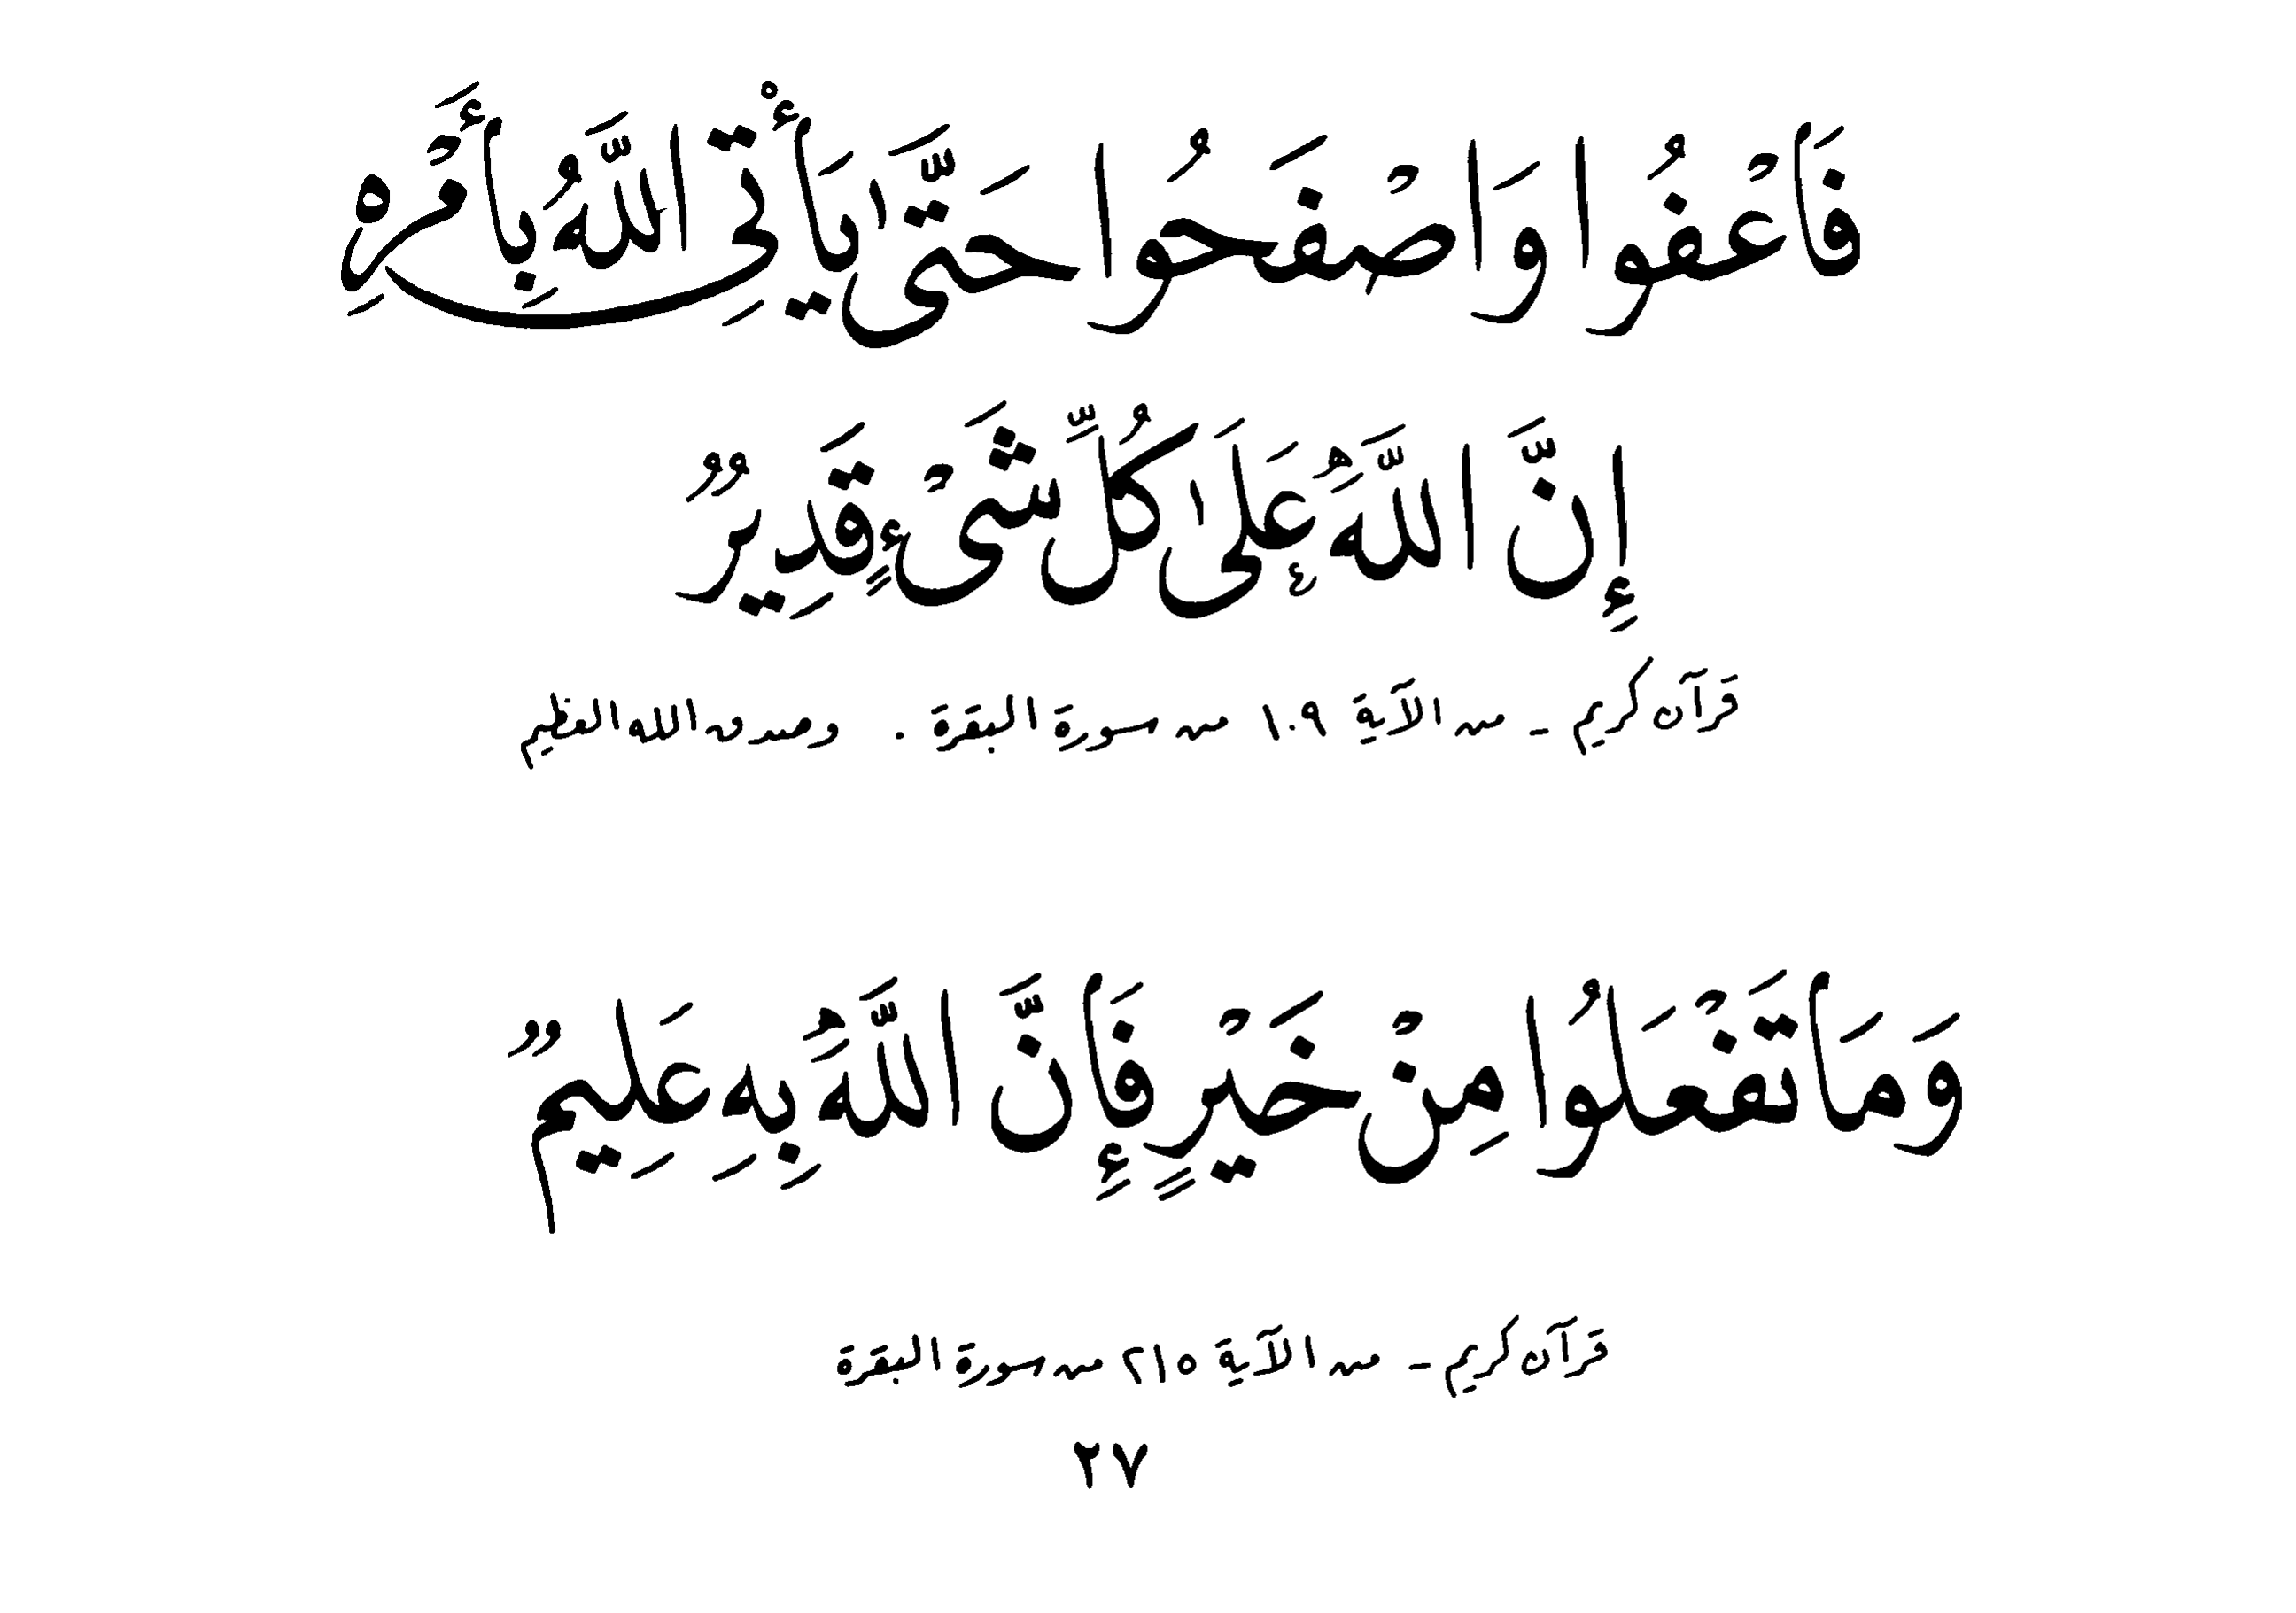 فَاعْفُوا وَاصْفَحُوا حَتَّىٰ يَأْتِىَ اللَّهُ بِأَمْرِهِ
إِنَّ اللَّهَ عَلَىٰ كُلِّ شَىْءٍ قَدِيرٌ
قرآن كريم - من الآية ١٠٩ من سورة البقرة . وصدق الله العظيم
وَمَا تَفْعَلُوا مِنْ خَيْرٍ فَإِنَّ اللَّهَ بِهِ عَلِيمٌ
قرآن كريم - من الآية ٢١٥ من سورة البقرة
٢٧